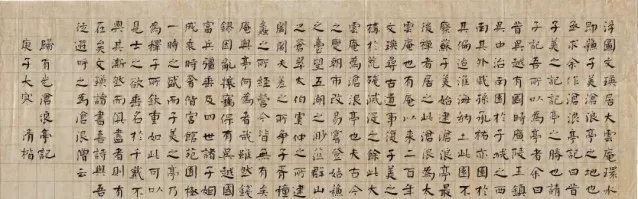 浮圖文瑛居大雲庵環水
即蘇子美滄浪亭之地也
亟求余作滄浪亭記曰昔
子美之記記亭之勝也請
子記吾所以為亭者余曰
昔吳越有國時廣陵王鎮
吳中治南園於子城之西
南其外戚孫承祐亦園於
其偏迨淮海納土此園不
廢蘇子美始建滄浪亭最
後禪者居之此滄浪亭為大
雲庵也有庵以來二百年
文瑛尋古遺事復子美之
構於荒殘滅沒之餘此大
雲庵為滄浪亭也夫古今
之變朝市改易嘗登姑蘇
之臺望五湖之渺茫群山
之蒼翠太伯虞仲之所建
闔閭夫差之所爭子胥種
蠡之所經營今皆無有矣
庵與亭何為者哉雖然錢
鏐因亂攘竊保有吳越國
富兵強垂及四世諸子姻
戚乘時奢僭宮館苑囿極
一時之盛而子美之亭乃
為釋子所欽重如此可以
見士之欲垂名於千載不
與其澌然而俱盡者則有
在矣文瑛讀書喜詩與吾
徒遊呼之為滄浪僧云
歸有光滄浪亭記
庚子大寒